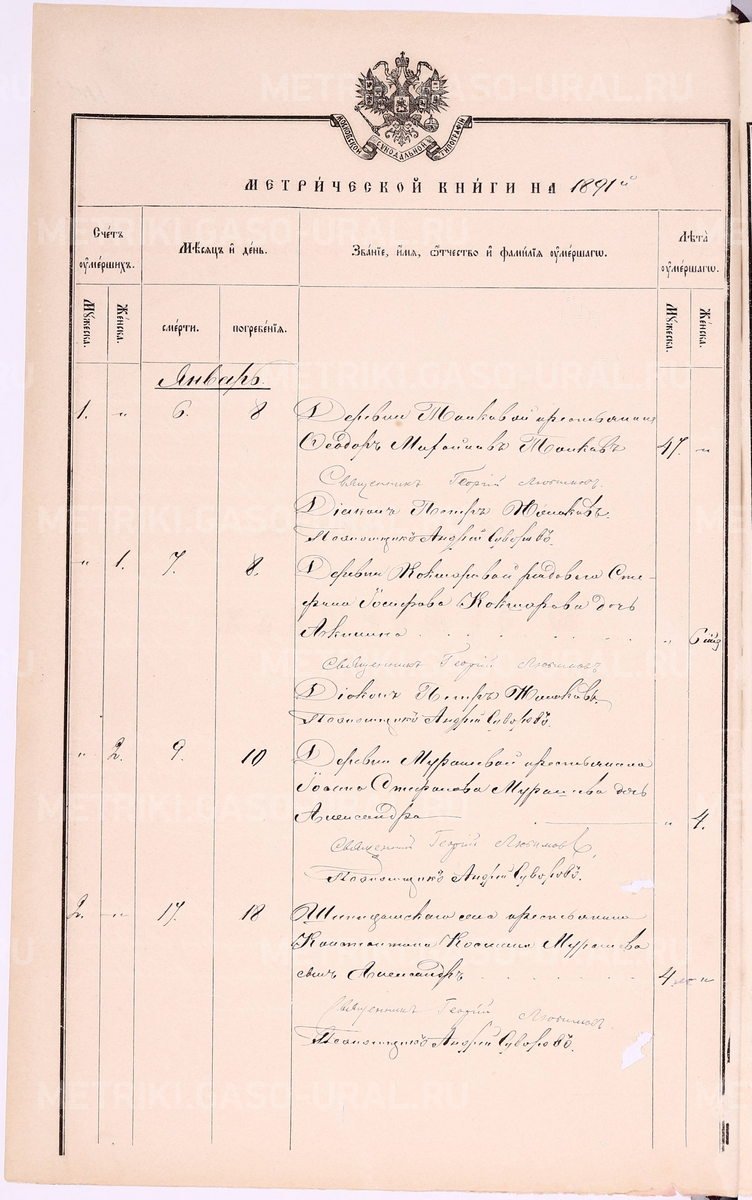 МОСКОВСКОЙ СѴНОДАЛЬНОЙ ТИПОГРАФІИ
МЕТРИ́ЧЕСКОЙ КНИ́ГИ НА 1891й
Сче́тъ ѹ҆ме́ршихъ.
Мѣ́сяцъ и҆ де́нь.
Зва́нїе, и҆́мя, ѻ҆́тчество и҆ фами́лїя ѹ҆ме́ршагѡ.
Лѣ́та ѹ҆ме́ршагѡ.
Мꙋ́жеска.
Же́нска.
сме́рти.
погребе́нїѧ.
Мꙋ́жеска.
Же́нска.
Январь.
1. " 6. 8 Деревни крестьянинъ
Ѳеодоръ 47. "
Священникъ Георгій Любимовъ.
Діаконъ Петръ
Псаломщикъ Андрей Суворовъ.
" 1. 7. 8. Деревни Кокшаровой рядового Сте-
фана Іосифова Кокшарова дочь
Акилина " 6
Священникъ Георгій Любимовъ
Діаконъ Петръ
Псаломщикъ Андрей Суворовъ.
" 2. 9. 10 Деревни Мурашевой крестьянина
Іоанна Стефанова Мурашева дочь
Александра " 4.
Священникъ Георгій Любимовъ
Псаломщикъ Андрей Суворовъ.
2. " 17. 18 села крестьянина
Константина Космина Мурашева
сынъ Александръ 4 "
Священникъ Георгій Любимовъ
Псаломщикъ Андрей Суворовъ.
METRIKI.GASO-URAL.RU